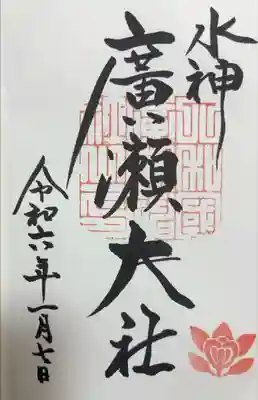 水神
廣瀬大社
令和六年一月七日